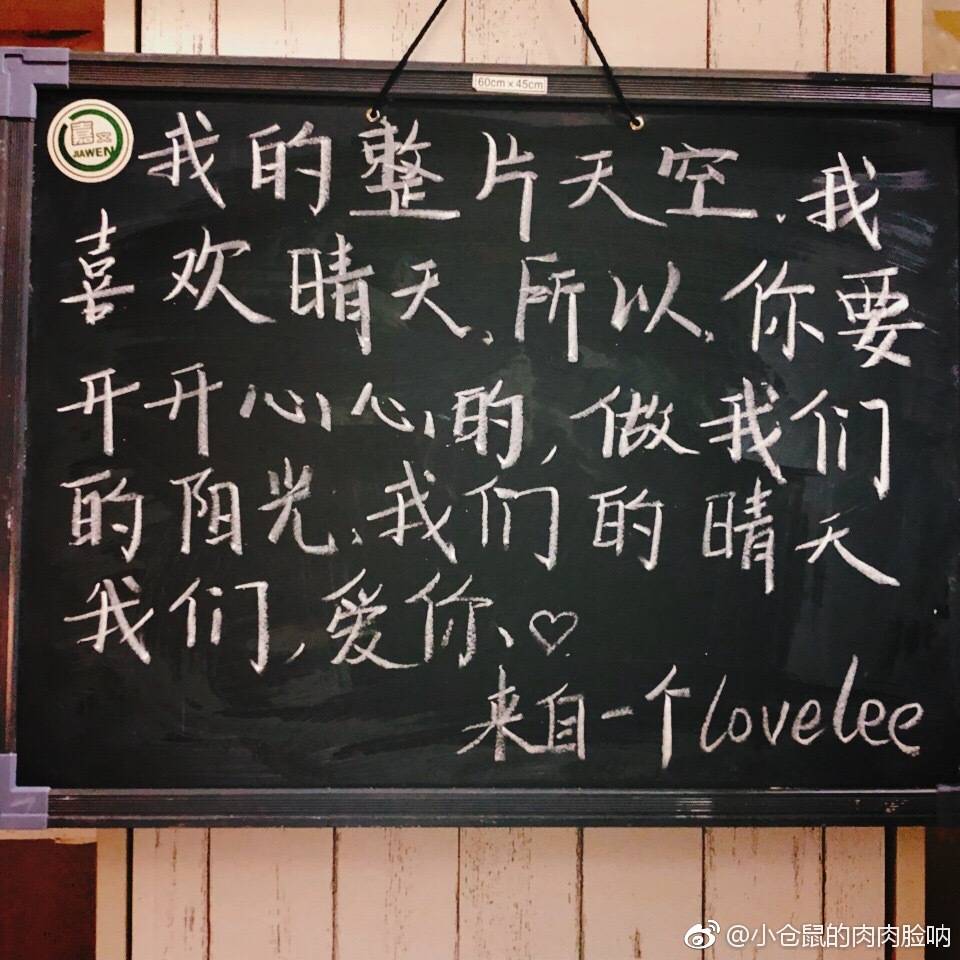 60cm×45cm
嘉文
JIAWEN
我的整片天空.我
喜欢晴天.所以.你要
开开心心的,做我们
的阳光.我们的晴天
我们,爱你、♡
来自一个lovelee
@小仓鼠的肉肉脸呐